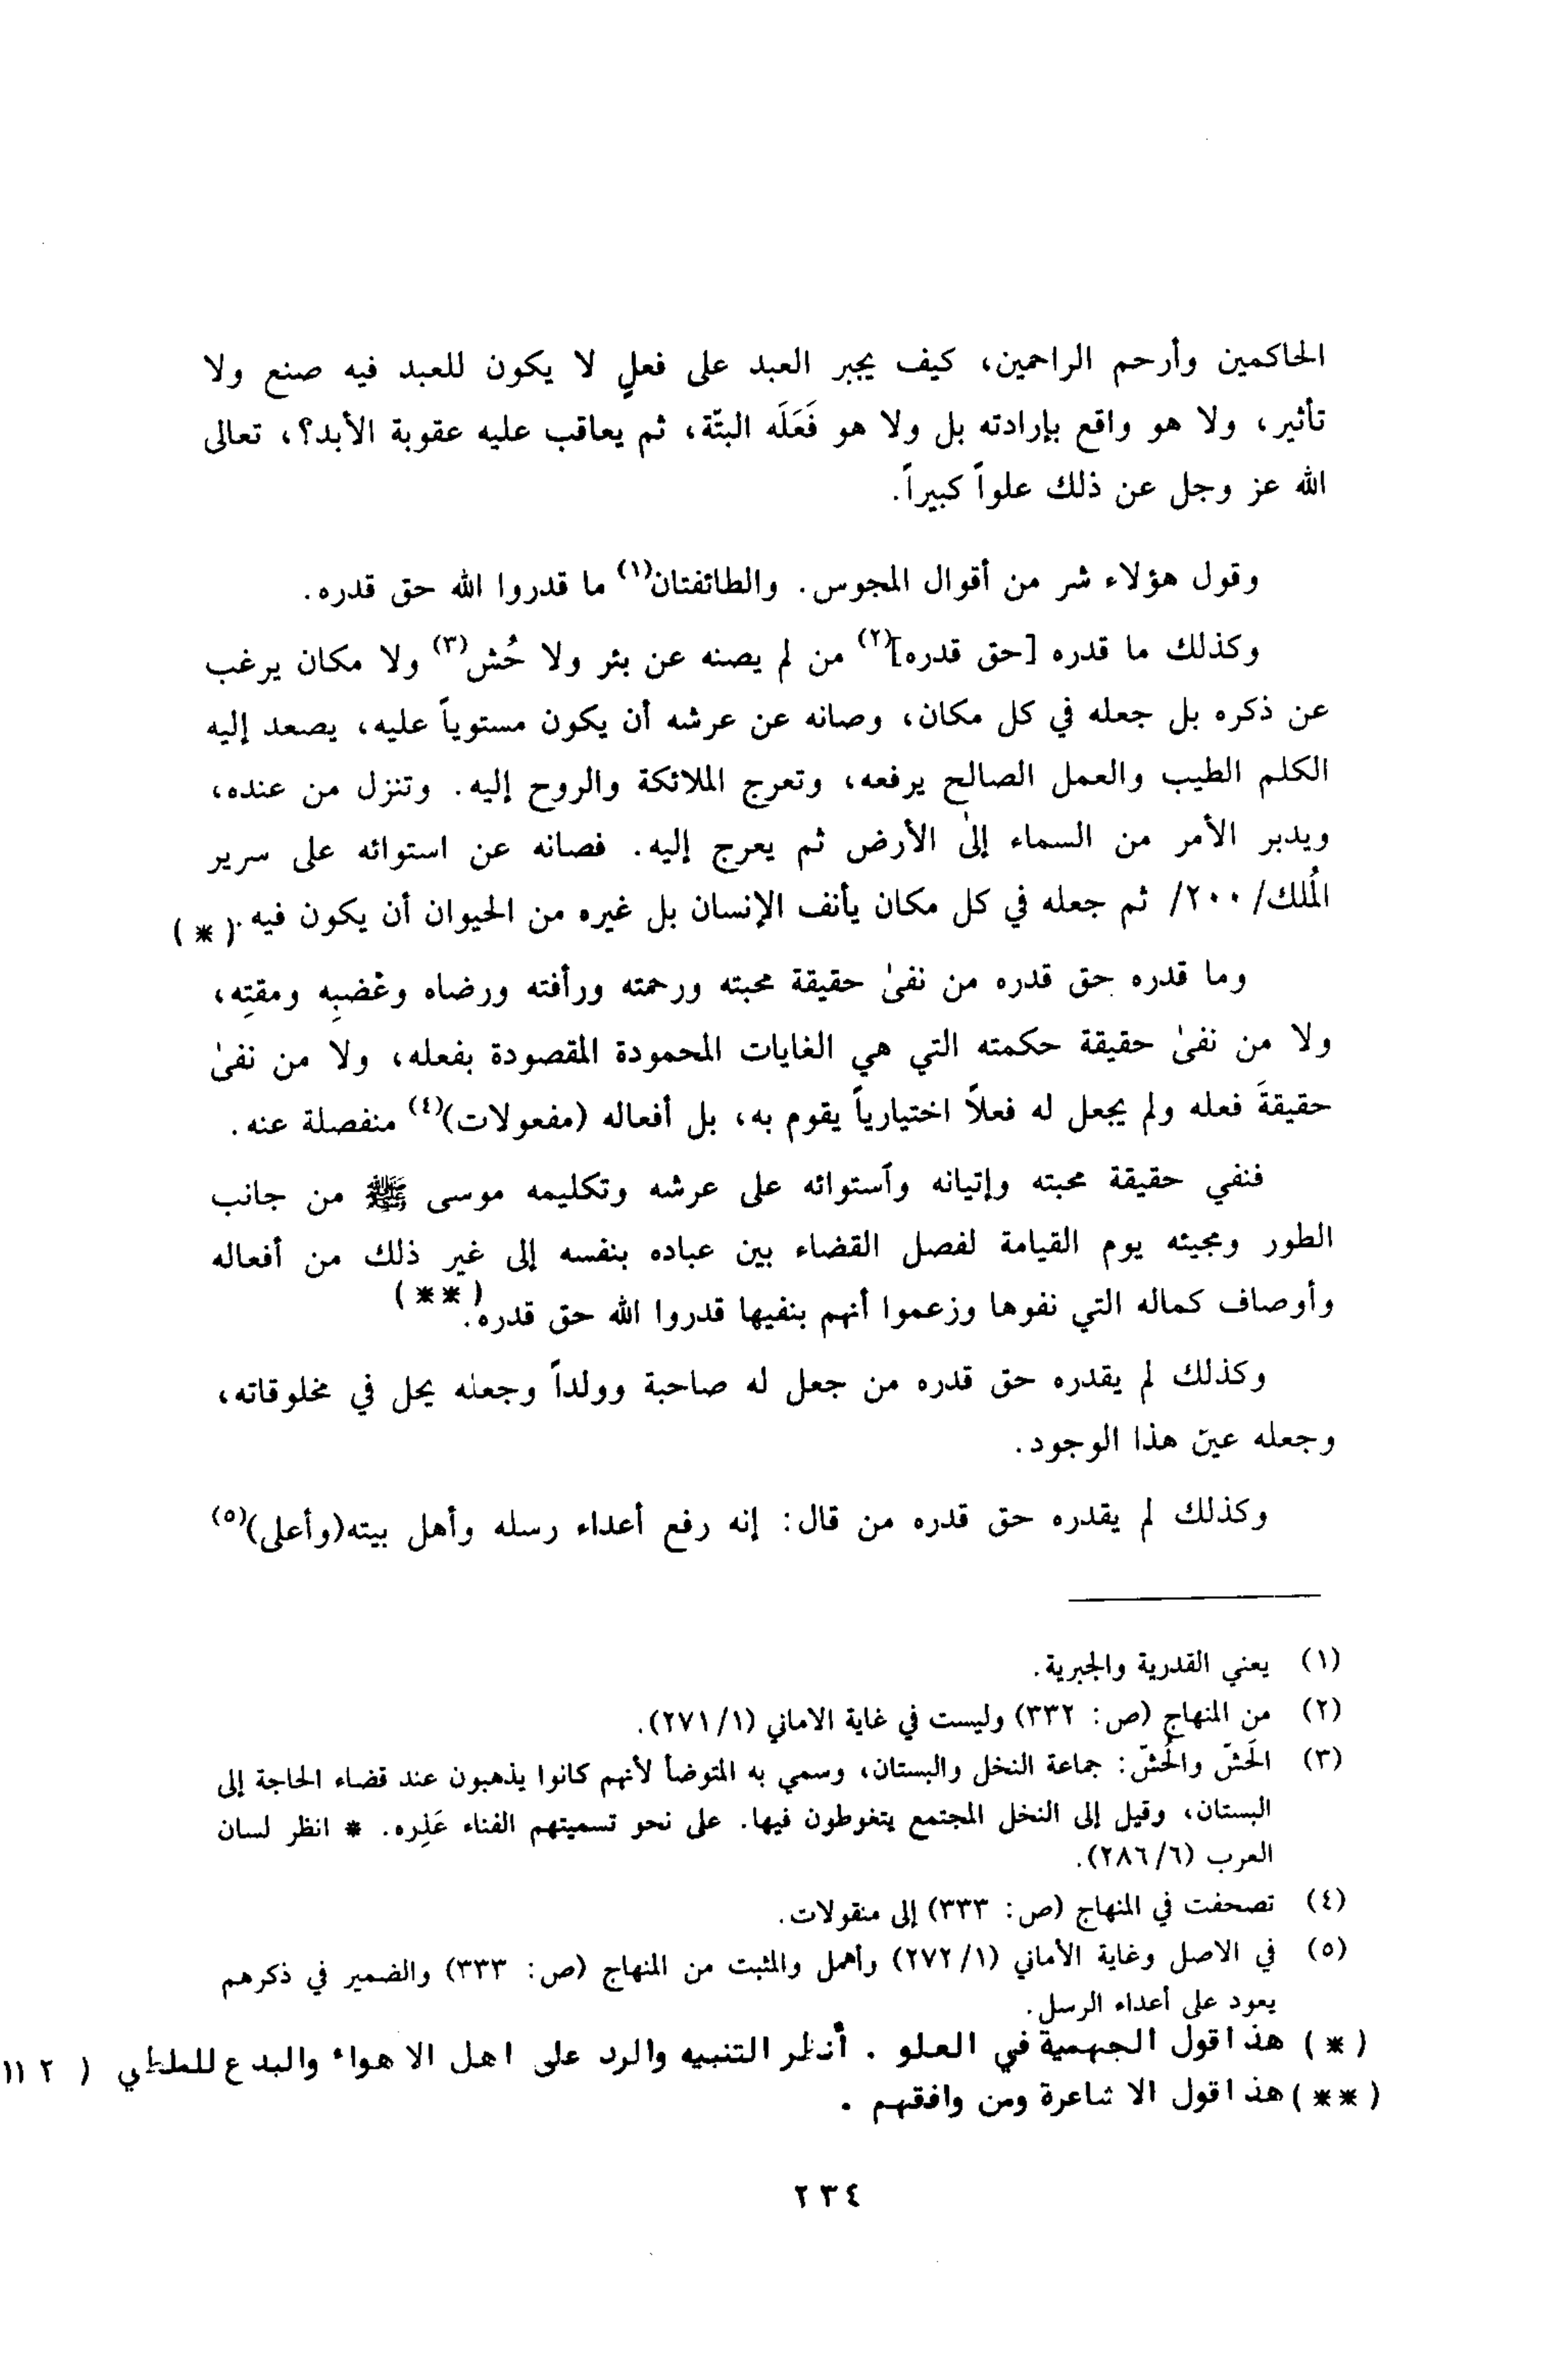 الحاكمين وأرحم الراحمين، كيف يجبر العبد على فعلٍ لا يكون للعبد فيه صنع ولا
تأثير، ولا هو واقع بإرادته بل ولا هو فَعَلَه البتّة، ثم يعاقب عليه عقوبة الأبد؟، تعالى
الله عز وجل عن ذلك علواً كبيراً.
وقول هؤلاء شر من أقوال المجوس. والطائفتان(١) ما قدروا الله حق قدره.
وكذلك ما قدره [حق قدره](٢) من لم يصنه عن بئر ولا حُش(٣) ولا مكان يرغب
عن ذكره بل جعله في كل مكان، وصانه عن عرشه أن يكون مستوياً عليه، يصعد إليه
الكلم الطيب والعمل الصالح يرفعه، وتعرج الملائكة والروح إليه. وتنزل من عنده،
ويدبر الأمر من السماء إلىٰ الأرض ثم يعرج إليه. فصانه عن استوائه على سرير
المُلك/ ٢٠٠/ ثم جعله في كل مكان يأنف الإنسان بل غيره من الحيوان أن يكون فيه.(*)
وما قدره حق قدره من نفىٰ حقيقة محبته ورحمته ورأفته ورضاه وغضبِه ومقتِه،
ولا من نفىٰ حقيقة حكمته التي هي الغايات المحمودة المقصودة بفعله، ولا من نفىٰ
حقيقةَ فعله ولم يجعل له فعلاً اختيارياً يقوم به، بل أفعاله (مفعولات)(٤) منفصلة عنه.
فنفي حقيقة محبته وإتيانه وآستوائه على عرشه وتكليمه موسى ﷺ من جانب
الطور ومجيئه يوم القيامة لفصل القضاء بين عباده بنفسه إلى غير ذلك من أفعاله
وأوصاف كماله التي نفوها وزعموا أنهم بنفيها قدروا الله حق قدره.(**)
وكذلك لم يقدره حق قدره من جعل له صاحبة وولداً وجعله يحل في مخلوقاته،
وجعله عين هذا الوجود.
وكذلك لم يقدره حق قدره من قال: إنه رفع أعداء رسله وأهل بيته(وأعلى)(٥)
(١) يعني القدرية والجبرية.
(٢) من المنهاج (ص: ٣٣٢) وليست في غاية الاماني (٢٧١/١).
(٣) الحَشّ والحُشّ: جماعة النخل والبستان، وسمي به المتوضأ لأنهم كانوا يذهبون عند قضاء الحاجة إلى
البستان، وقيل إلى النخل المجتمع يتغوطون فيها. على نحو تسميتهم الفناء عَذِره. * انظر لسان
العرب (٢٨٦/٦).
(٤) تصحفت في المنهاج (ص: ٣٣٣) إلى منقولات.
(٥) في الاصل وغاية الأماني (٢٧٢/١) وأهمل والمثبت من المنهاج (ص: ٣٣٣) والضمير في ذكرهم
يعود على أعداء الرسل.
(*) هذا قول الجهمية في العلو . أنظر التنبيه والرد على اهل الاهواء والبدع للملطي (
(**) هذا قول الاشاعرة ومن وافقهم .
٢٣٤